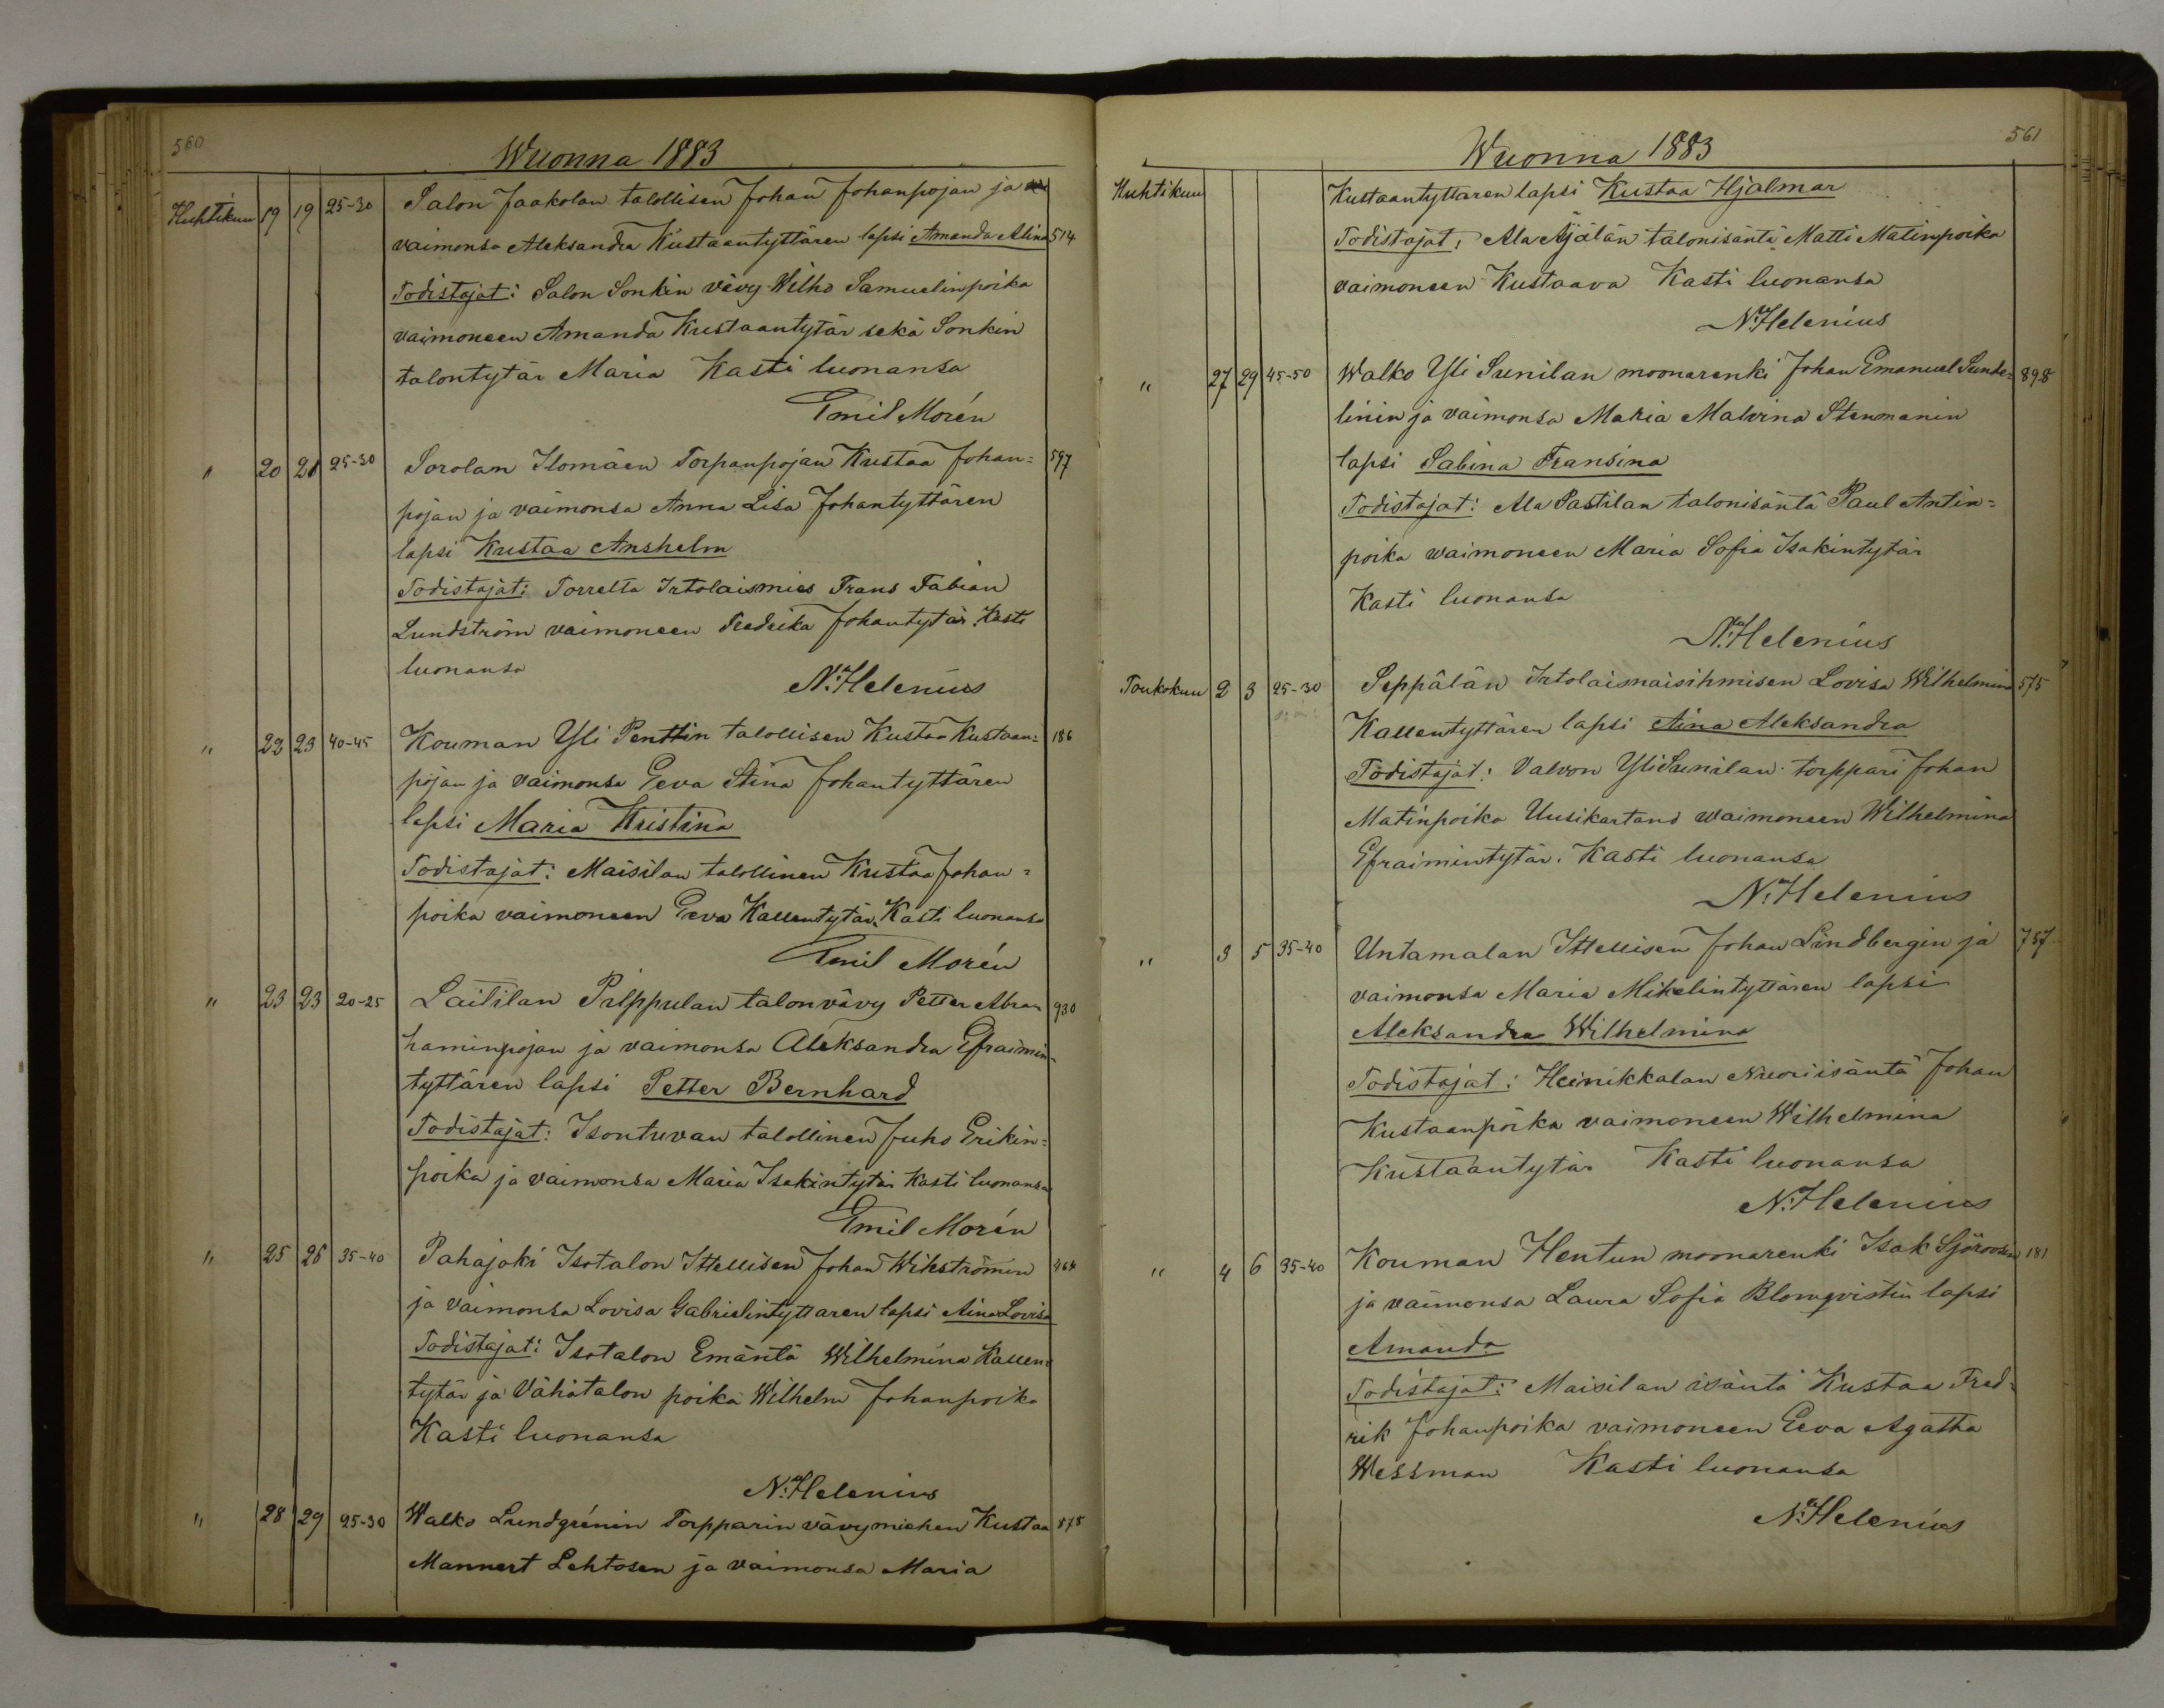 560
Wuonna 1883
Huhtikuu 19 19 25-30 Salon Jaakolan talollisen Johan Johanpojan ja
vaimonsa Aleksandra Kustaantyttären lapsi Amanda Alina 514
Todistajat: Salon Sonkin vävy Wilho Samuelinpoika
vaimoneen Amanda Kustaantytär sekä Sonkin
talontytär Maria Kasti luonansa
Emil Morén
" 20 21 25-30 Sorolan Ilomäen Torpanpojan Kustaa Johan= 597
pojan ja vaimonsa Anna Lisa Johantyttären
lapsi Kustaa Anshelm
Todistajat: Torrelta Irtolaismies Frans Fabian
Lundström vaimoneen Fredrika Johantytär. Kasti
luonansa
N. Helenius
" 22 23 40-45 Kouman Yli Penttin talollisen Kustaa Kustaan= 186
pojan ja vaimonsa Eeva Stina Johantyttären
lapsi Maria Kristina
Todistajat: Maisilan talollinen Kustaa Johan=
poika vaimoneen Eeva Kallentytär. Kasti luonansa
Emil Morén
" 23 23 20-25 Laitilan Prippulan talonvävy Petter Abra 930
haminpojan ja vaimonsa Aleksandra Efraimin-
tyttären lapsi Petter Bernhard
Todistajat: Isontuvan talollinen Juho Erikin=
poika ja vaimonsa Maria Isakintytär Kasti luonansa
Emil Morén
" 25 26 35-40 Pahajoki Isotalon Ittellisen Johan Wikströmin 464
ja vaimonsa Lovisa Gabrielintyttaren lapsi Aina Lovisa
Todistajat: Isotalon Emäntä Wilhelmina Kallen=
tytär ja Vähätalon poika Wilhelm Johanpoika
Kasti luonansa
N. Helenius
" 28 29 25-30 Walko Lundgrénin Torpparin vävymiehen Kustaa 875
Mannert Lehtosen ja vaimonsa Maria
561
Wuonna 1883
Huhtikuu Kustaantyttaren lapsi Kustaa Hjalmar
Todistajat: Ala Äjälän talonisäntä Matti Matinpoika
vaimoneen Kustaava Kasti luonansa
N. Helenius
" 27 29 45-50 Walko Yli Sunilan moonarenki Johan Emanuel Sunde= 898
linin ja vaimonsa Maria Malvina Stenmanin
lapsi Sabina Fransina
Todistajat: Ala Pastilan talonisäntä Paul Antin=
poika waimoneen Maria Sofia Isakintytär
Kasti luonansa
N. Helenius
Toukokuu 2 3 25-30 Seppälän Irtolaisnaisihmisen Lovisa Wilhelmina 575
Kallentyttären lapsi Aina Aleksandra
Todistajat: Valvon Yli Sunilan torppari Johan
Matinpoika Uusikartano waimoneen Wilhelmina
Efraimintytär. Kasti luonansa
N. Helenius
" 3 5 35-40 Untamalan Ittellisen Johan Lindbergin ja 757
vaimonsa Maria Mikelintyttären lapsi
Aleksandra Wilhelmina
Todistajat: Heinikkalan Nuori isäntä Johan
Kustaanpoika vaimoneen Wilhelmina
Kustaantytär Kasti luonansa
N. Helenius
" 4 6 35-40 Kouman Hentun moonarenki Isak Sjöroosin 181
ja vaimonsa Laura Sofia Blomqvistin lapsi
Amanda
Todistajat: Maisilan isäntä Kustaa Fred=
rik Johanpoika vaimoneen Eeva Agatha
Wessman Kasti luonansa
N. Helenius